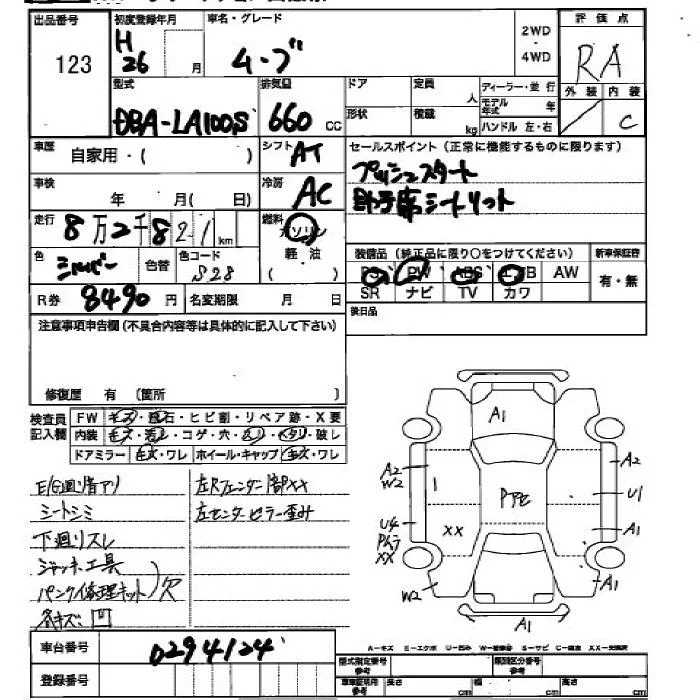 出品番号
123
初度登録年月
H
26 月
車名・グレード
ム・ブ
2WD
・
4WD
評価点
RA
外装 内装
C
型式
DBA-LA100S
排気量
660 cc
ドア
定員
人
ディーラー・並行
モデル年式 年
形状
積載
kg
ハンドル 左・右
車歴
自家用・( )
シフト AT
セールスポイント(正常に機能するものに限ります)
プッシュスタート
助手席シートリフト
車検
年 月( 日)
冷房 AC
走行
8万2千821km
燃料
ガソリン
軽・油
( )
色 シルバー
色替
色コード S28
装備品(純正品に限り○をつけてください)
新車保証書
PS PW ABS エAB AW
有・無
SR ナビ TV カワ
R券 8490 円
名変期限 月 日
後日品
注意事項申告欄(不具合内容等は具体的に記入して下さい)
修復歴 有 (箇所 )
検査員
記入欄
FW キズ・飛石・ヒビ割・リペア跡・X要
内装 キズ・汚レ・コゲ・穴・スリ・ヘタリ・破レ
ドアミラー キズ・ワレ ホイール・キャップ キズ・ワレ
E/G廻り音アリ
シートシミ
下廻リスレ
ジャッキ工具
パンク修理キット)欠
各キズ、凹
左Rフェンダー内部XX
左センターピラー歪み
A1
A2
W2
1
U4
XX
XX
W2
Pアセ
A2
U1
A1
A1
A1
A-キズ E-エクボ U-凹み
車台番号
0294124
登録番号
型式指定番号
参考
類別区分番号
参考
車体証明用
参考
長さ cm
幅 cm
高さ cm